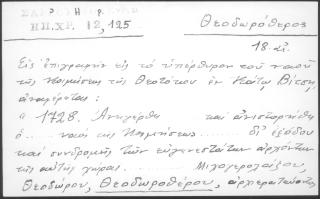 ΗΠ.ΧΡ. 12, 125
Θεοδωρόθερος
18. αι.
Εις επιγραφήν εις το υπέρθυρον του ναού
της Κοιμήσεως της Θεοτόκου εν Κάτω Βίτση
αναφέρεται:
"1728. Ανηγέρθη και ανιστορήθη
ο... ναός της Κοιμήσεως... δι' εξόδου
και συνδρομής των ευγενεστάτων αρχόντων
της αυτής χώρας...
Θεοδώρου, Θεοδωροθέρου, αρχιερατεύοντος